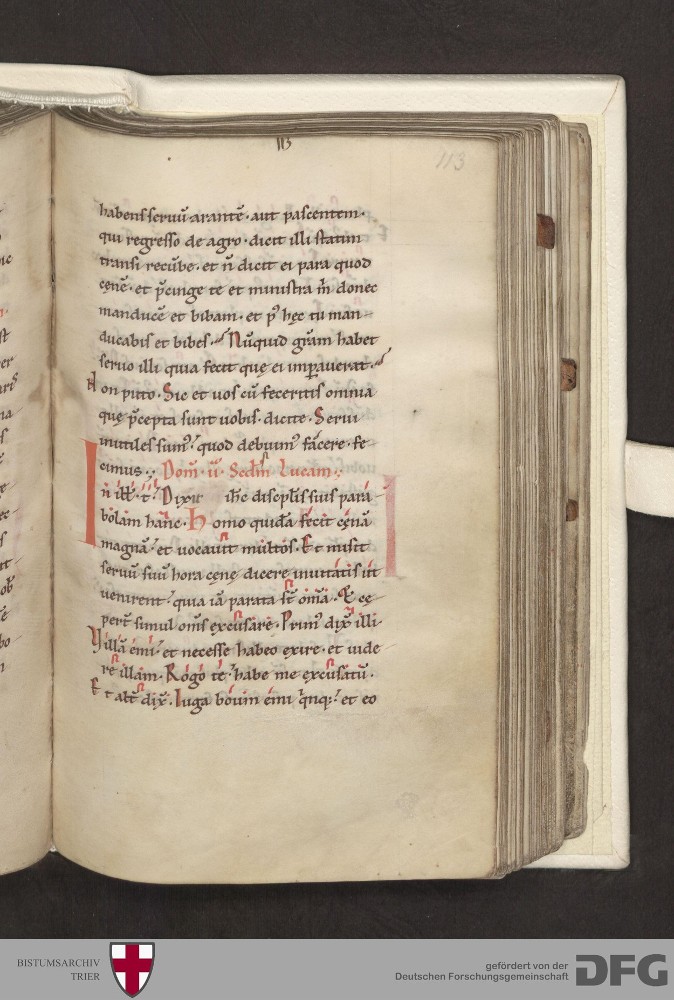 113
113
habens seruū arantē · aut pascentem ·
qui regresso de agro · dicit illi statim
transi recūbe · et ñ dicit ei para quod
cęnē · et p̄cinge te et ministra m̄ donec
manducē et bibam · et pꝰ hęc tu man
ducabis et bibes · Nūquid grām habet
seruo illi quia fecit quę ei imꝑauerat ·
Non puto · Sic et uos cū feceritis omnia
quę p̄cepta sunt uobis · dicite · Serui
inutiles sumꝰ · quod debuimꝰ facere · fe
cimus · Dom̄ · ii · Scdm̄ Lucam ·
In ill̄ · t̄ · Dixit ihc̄ discipl̄is suis para
bolam hanc · Homo quidā fecit cęnā
magnā · et uocauit multos · Et misit
seruū suū hora cęnę dicere inuitatis ut
uenirent · quia iā parata st̄ om̄ia · Et cę
per̄t simul om̄s excusare · Primꝰ dix̄ illi ·
Villā emi · et necesse habeo exire · et uide
re illam · Rogo te · habe me excusatū ·
Et alt̄ dix̄ · Iuga bouum emi q̄nq; · et eo
BISTUMSARCHIV
TRIER
gefördert von der
Deutschen Forschungsgemeinschaft
DFG